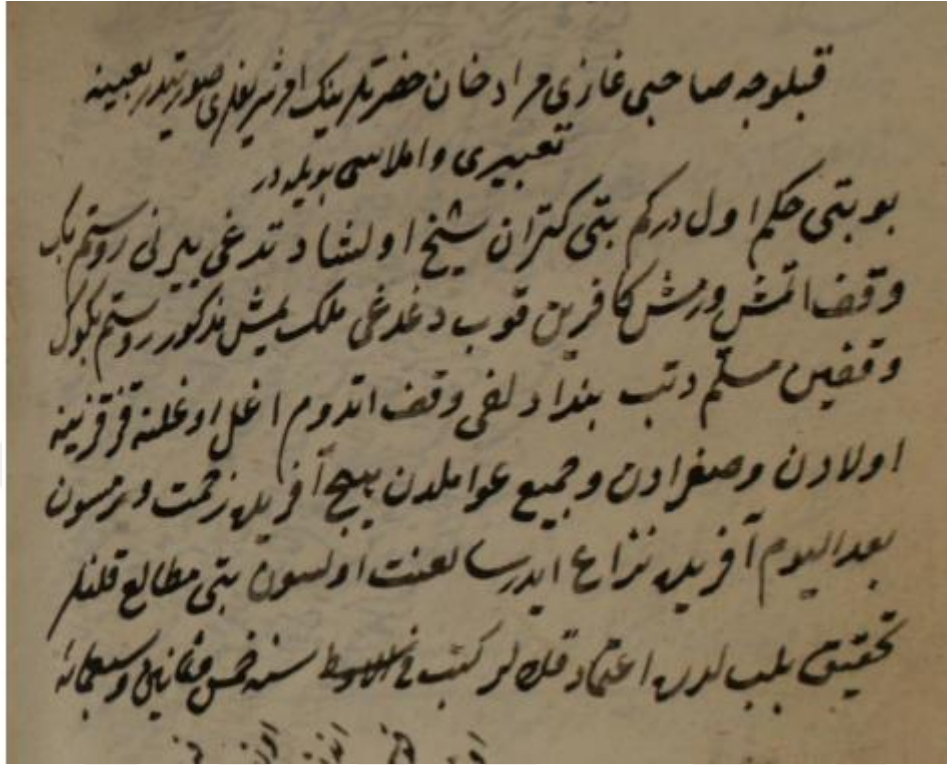 قبلوجه صاحبى غازى مراد خان حضرتلرينك امر شريفلرى صورتيدر بعينه
تعبيرى و املاسى بويله در
بو بتى حكم اول دركم بتى كتران شيخ اولشاد تدغى ييرنى روستم بك
وقف اتمش ورمش كافرين قوب دغدغى ملك يمش مذكور روستم بكوك
وقفين مسلم دتب بنداد لفى وقف اتدوم اغل اوغلنه قز قزينه
اولادن وصغرادن وجميع عواملدن هيچ آفريده زحمت ورمسون
بعد اليوم آفريده نزاع ايدرسا لعنت اولسون بتى مطالع قلنلر
تحقيق بلب لدن اعتماد قلالر كتب فى سنه خمس وثمانين وسبعمائه